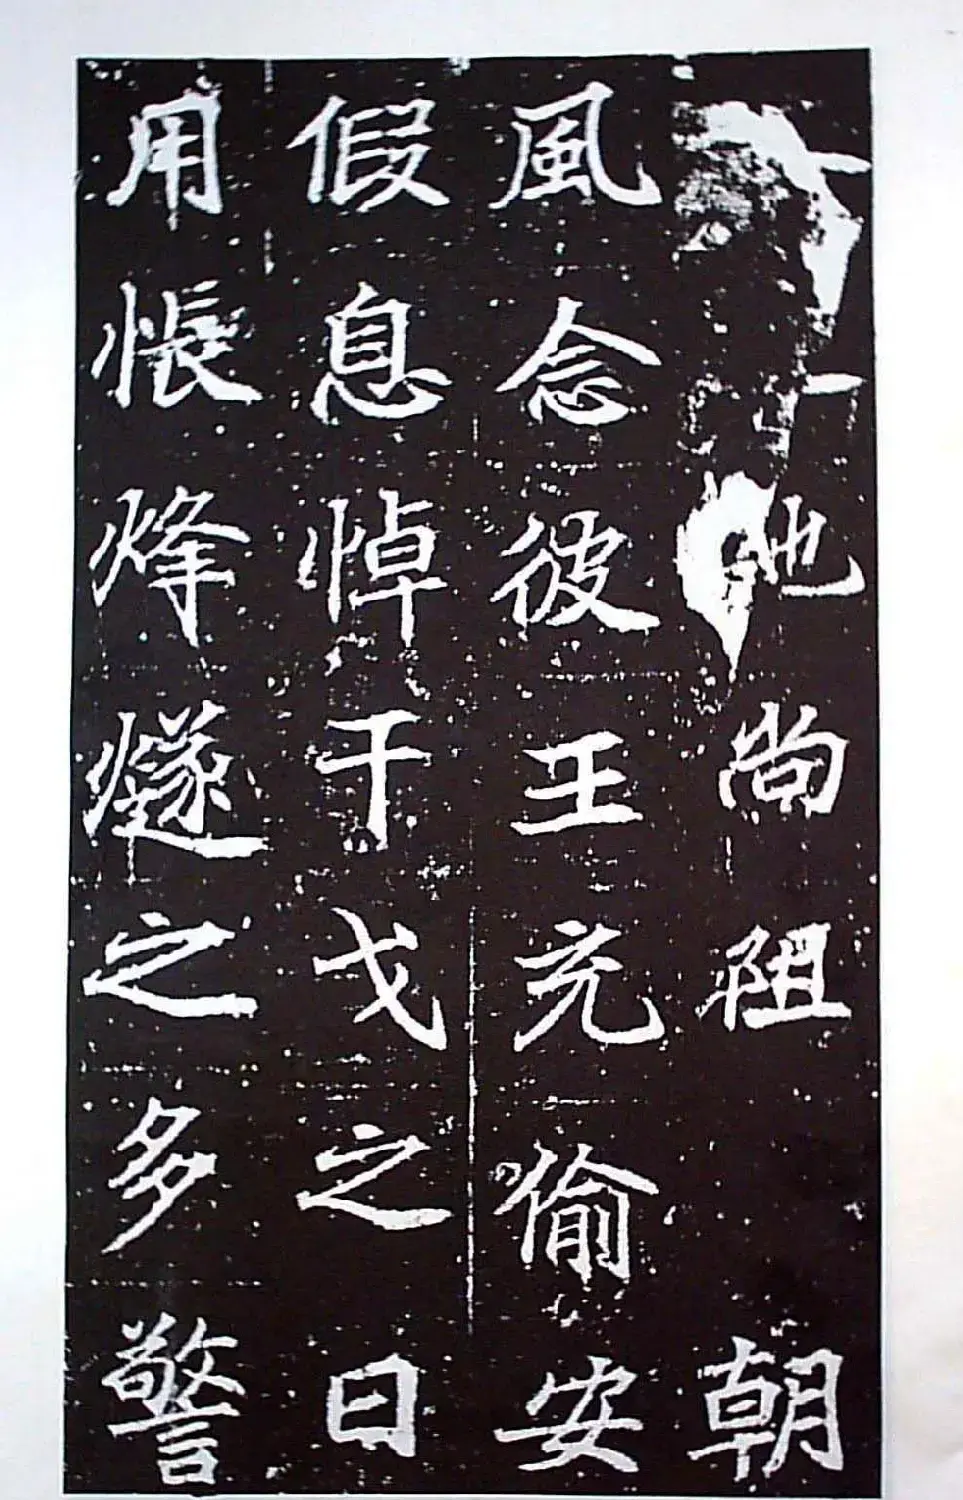 尚阻朝
風念彼王充偷安
假息悼干戈之日
用悵烽燧之多警